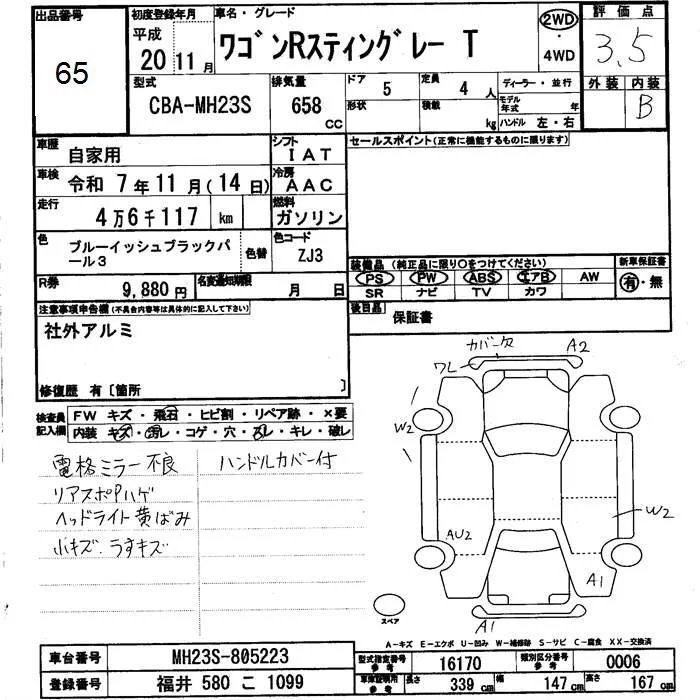 出品番号 初度登録年月 車名・グレード 2WD 評価点
65 平成 20年 11月 ワゴンRスティングレー T 4WD 3.5
型式 排気量 ドア 5 定員 4人 ディーラー・並行 外装 内装
CBA-MH23S 658 CC 形状 積載 kg モデル年式 年 ハンドル 左・右 B
車歴 自家用 シフト IAT セールスポイント(正常に機能するものに限ります)
車検 令和 7年 11月(14日) 冷房 AAC
走行 4万6千117 km 燃料 ガソリン
色 ブルーイッシュブラックパール3 色替 色コード ZJ3
装備品(純正品に限り○をつけてください) 新車保証書
R券 9,880円 名変通知期限 月 日 PS PW ABS エアB AW 有・無
SR ナビ TV カワ
注意事項申告欄(不具合内容等は具体的に記入して下さい) 後日品 保証書
社外アルミ
修復歴 有〔箇所 〕
検査員記入欄 FW キズ・飛石・ヒビ割・リペア跡・×要
内装 キズ・汚レ・コゲ・穴・スレ・キレ・破レ
電格ミラー不良 ハンドルカバー付
リアスポPハゲ
ヘッドライト黄ばみ
小キズ、うすキズ
カバー欠 A2
ワレ
W2
W2
AU2
A1
A1
スペア
A-キズ E-エクボ U-凹み W-補修跡 S-サビ C-腐食 XX-交換済
車台番号 MH23S-805223 型式指定番号 参考 16170 類別区分番号 参考 0006
登録番号 福井 580 こ 1099 車検証明用 参考 長さ 339 cm 幅 147 cm 高さ 167 cm